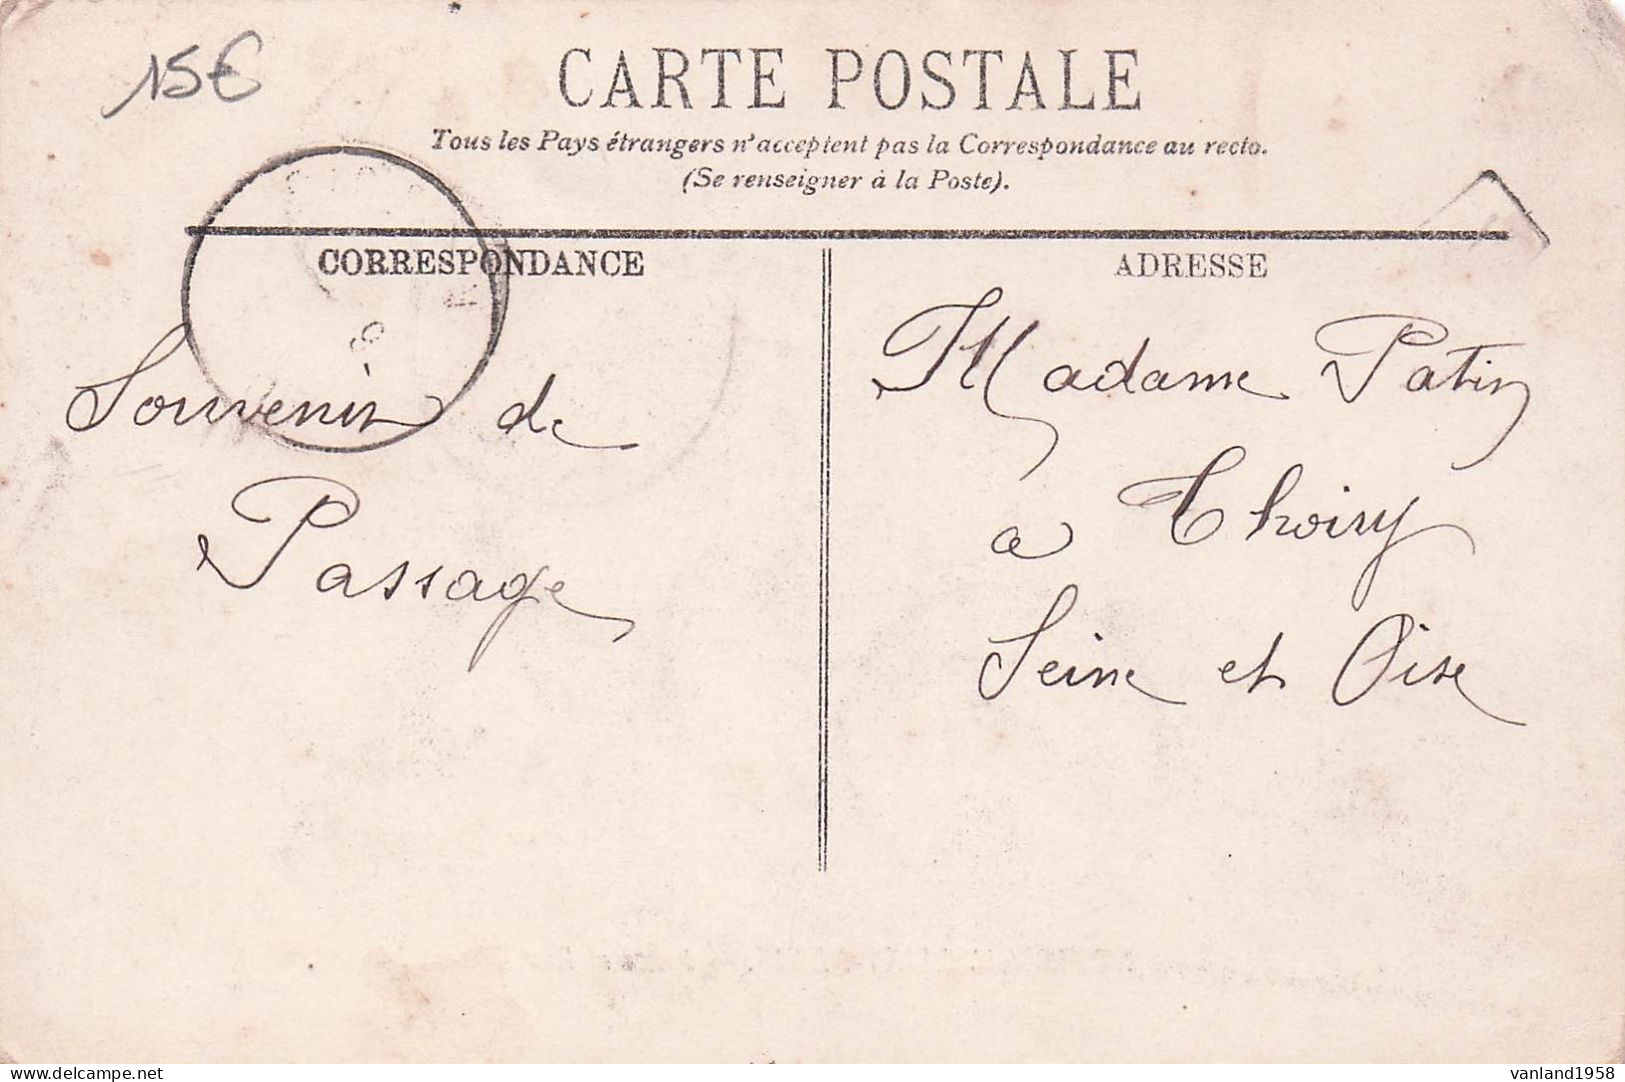 15€
CARTE POSTALE
Tous les Pays étrangers n'acceptent pas la Correspondance au recto.
(Se renseigner à la Poste).
CORRESPONDANCE
Souvenir de
Passage
ADRESSE
Madame Patin
a Thoiry
Seine et Oise
vanland1958